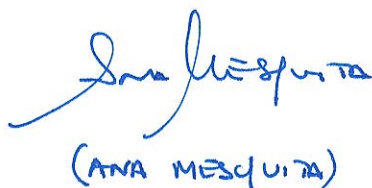 Ana Mesquita
(ANA MESQUITA)